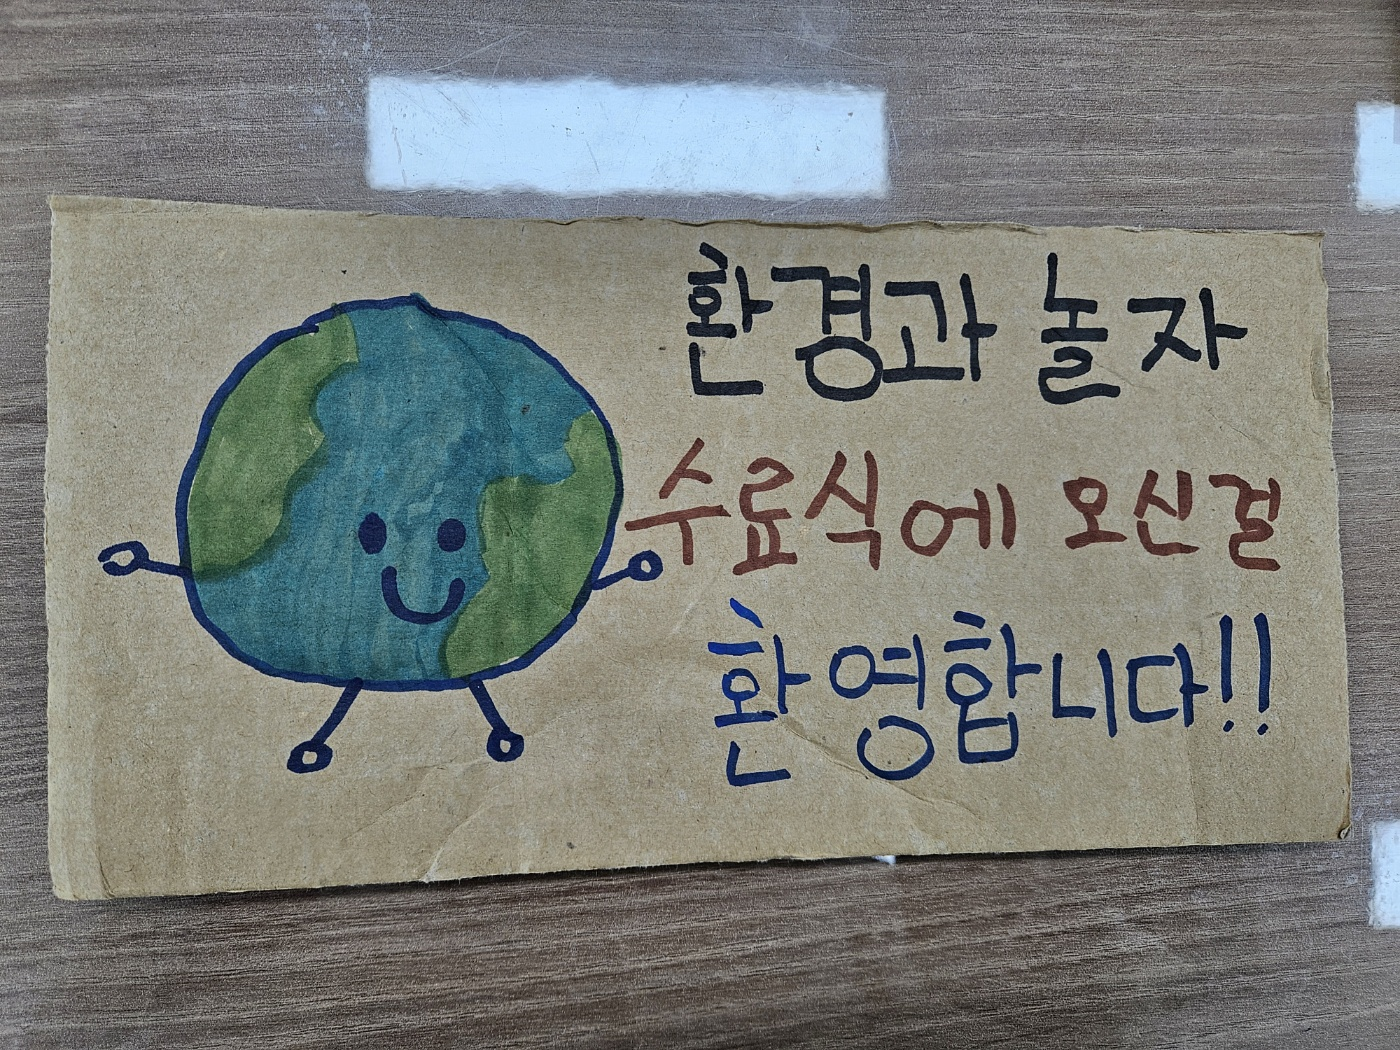 환경과 놀자
수료식에 오신걸
환영합니다!!